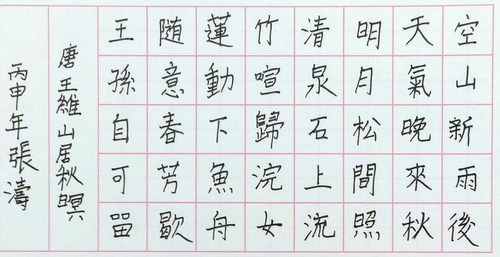 空山新雨後
天氣晚來秋
明月松間照
清泉石上流
竹喧歸浣女
蓮動下魚舟
随意春芳歇
王孫自可留
唐王維山居秋暝
丙申年張濤